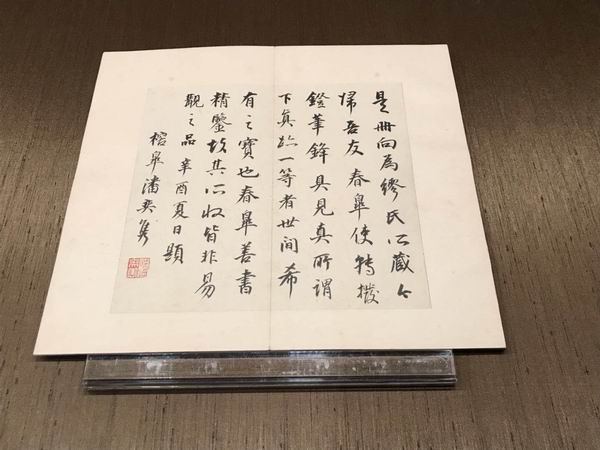 是冊向爲繆氏所藏今
歸吾友春皐使轉撥
鐙筆鋒具見真所謂
下真跡一等者世間希
有之寶也春皐善書
精鑒故其所收皆非易
覯之品辛酉夏日題
榕皐潘奕雋